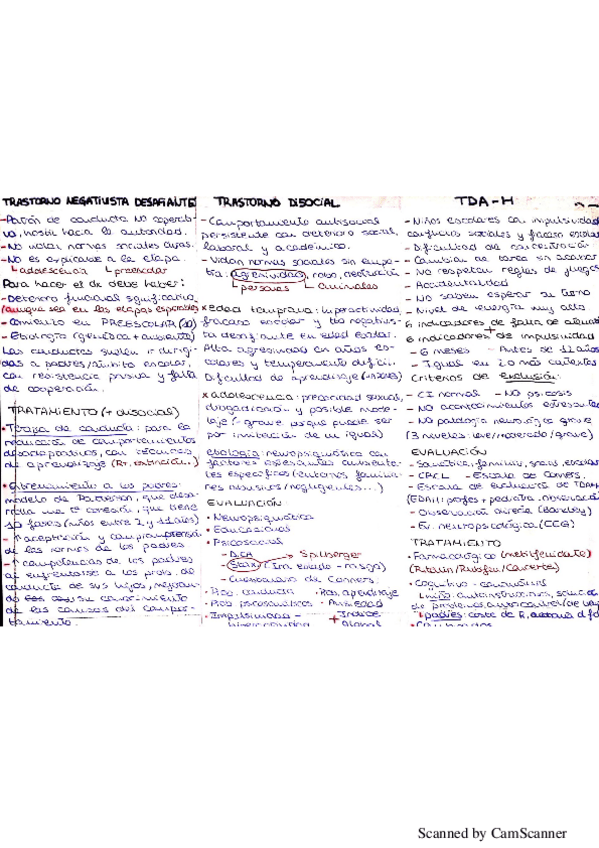 TRASTORNO NEGATIVISTA DESAFIANTE
-Patrón de conducta no coperati-
vo, hostil hacia la autoridad.
-No violar normas sociales
-No es aplicable a la etapa
adolescencia preescolar
Para hacer el dx debe haber:
-Deterioro funcional significativo
(aunque sea en las etapas esperables)
-Comienzo en PREESCOLAR
-Etiología (genética + ambiente)
Las conductas suelen ir dirigi-
das a padres/ámbito escolar,
con resistencia pasiva y falta
de cooperación.
TRATAMIENTO (+ disocial)
• Terapia de conducta: para la
reducción de comportamientos
desadaptativos, con técnicas
de aprendizaje (Rt, extinción..)
• Entrenamiento a los padres:
modelo de Patterson, que desa-
10 fases (niños entre 2 y 12 años)
- ↑ aceptación y comprensión
de las normas de los padres
- ↑ competencias de los padres
al enfrentarse a los prob. de
conducta de sus hijos, mejoran-
do su conocimiento
de las causas del compor-
tamiento.
TRASTORNO DISOCIAL
-Comportamiento antisocial
persistente con deterioro social,
laboral y académico.
-Violan normas sociales sin empa-
tía: agresividad, robo, destrucción
personas animales
x edad temprana: hiperactividad,
fracaso escolar y tto negativis-
ta desafiante en edad escolar.
Alta agresividad en años es-
colares y temperamento difícil.
Dificultad de aprendizaje
x adolescencia: precocidad sexual,
drogadicción y posible
(- grave porque puede ser
por imitación de un igual)
etiología: neuropsiquiátrica con
factores ambienta-
les específicos (entornos familia-
res abusivos/negligentes...)
EVALUACIÓN
• Neuropsiquiátrica
• Educacional
• Psicosocial
Spilberger
- Staxi (Ira estado - rasgo)
- Cuestionario de Conners.
• Prob. conducta • Prob. aprendizaje
• Prob psicosomáticos • Ansiedad
• Impulsividad - + Índice
hiperactividad global
TDA-H
-Niños escolares con impulsividad
conflictos sociales y fracaso escolar
-Dificultad de concentración
-Cambian de tarea sin acabar
-No respetan reglas de juegos
-Accidentalidad
-No saben esperar su turno
-Nivel de energía muy alto
6 indicadores de falta de atención
6 indicadores de impulsividad
-6 meses -Antes de 12 años
-Igual en 2 o más contextos
Criterios de exclusión:
-CI normal -No psicosis
-No acontecimientos estresantes
-No patología neurológica grave
(3 niveles: leve/moderado/grave)
EVALUACIÓN
-Somática, familiar, social, escolar
-CBCL -Escala de Conners
-Escala de evaluación de TDAH
-Observación directa (Barkley)
-Ev. neuropsicológica (CCG)
TRATAMIENTO
-Farmacológico (metilfenidato)
(Ritalin/Rubifen/Concerta)
-Cognitivo-conductual
niño: autoinstrucciones,
padres: coste de R,
Scanned by CamScanner